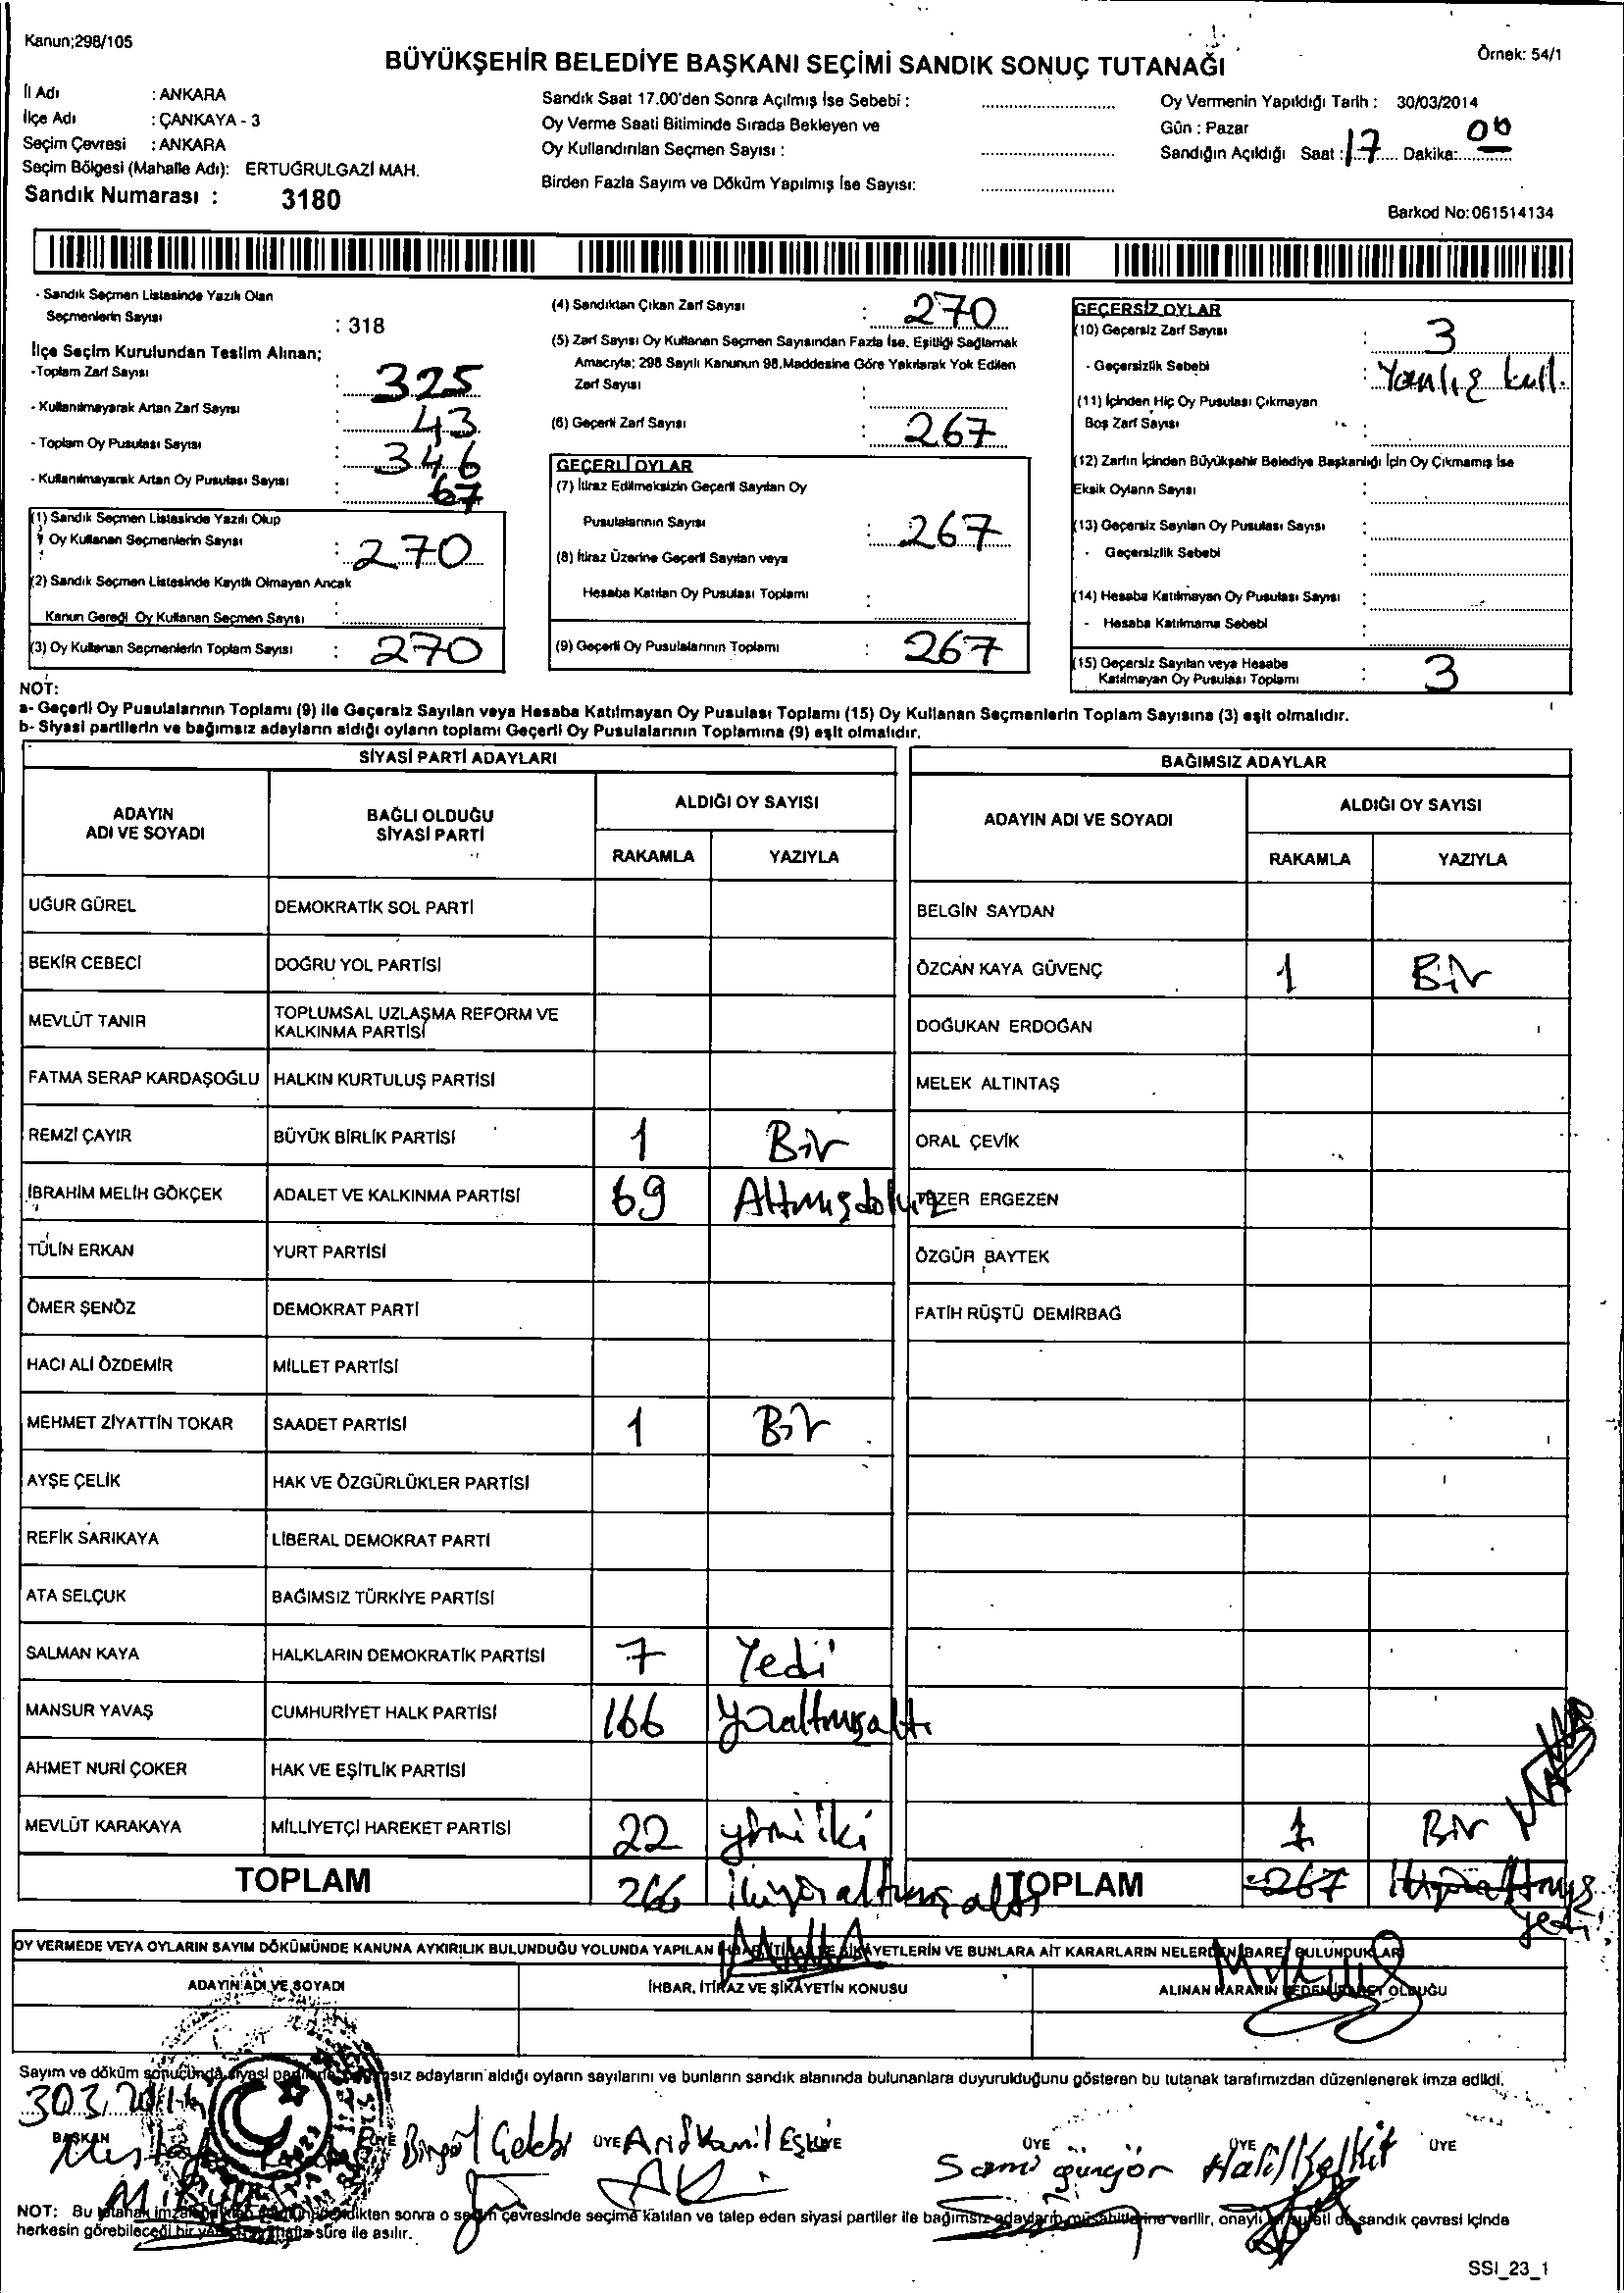 Kanun;298/105
BÜYÜKŞEHİR BELEDİYE BAŞKANI SEÇİMİ SANDIK SONUÇ TUTANAĞI
Örnek: 54/1
İl Adı : ANKARA
İlçe Adı : ÇANKAYA - 3
Seçim Çevresi : ANKARA
Seçim Bölgesi (Mahalle Adı): ERTUĞRULGAZİ MAH.
Sandık Numarası : 3180
Sandık Saat 17.00'den Sonra Açılmış İse Sebebi :
Oy Verme Saati Bitiminde Sırada Bekleyen ve
Oy Kullandırılan Seçmen Sayısı :
Birden Fazla Sayım ve Döküm Yapılmış İse Sayısı:
Oy Vermenin Yapıldığı Tarih : 30/03/2014
Gün : Pazar
Sandığın Açıldığı Saat : 17 Dakika: 00
Barkod No: 061514134
- Sandık Seçmen Listesinde Yazılı Olan
Seçmenlerin Sayısı : 318
İlçe Seçim Kurulundan Teslim Alınan;
-Toplam Zarf Sayısı : 325
- Kullanılmayarak Artan Zarf Sayısı : 43
- Toplam Oy Pusulası Sayısı : 346
- Kullanılmayarak Artan Oy Pusulası Sayısı : 67
(1) Sandık Seçmen Listesinde Yazılı Olup
Oy Kullanan Seçmenlerin Sayısı : 270
(2) Sandık Seçmen Listesinde Kayıtlı Olmayan Ancak
Kanun Gereği Oy Kullanan Seçmen Sayısı :
(3) Oy Kullanan Seçmenlerin Toplam Sayısı : 270
(4) Sandıktan Çıkan Zarf Sayısı : 270
(5) Zarf Sayısı Oy Kullanan Seçmen Sayısından Fazla İse, Eşitliği Sağlamak
Amacıyla; 298 Sayılı Kanunun 98.Maddesine Göre Yakılarak Yok Edilen
Zarf Sayısı :
(6) Geçerli Zarf Sayısı : 267
GEÇERLİ OYLAR
(7) İtiraz Edilmeksizin Geçerli Sayılan Oy
Pusulalarının Sayısı : 267
(8) İtiraz Üzerine Geçerli Sayılan veya
Hesaba Katılan Oy Pusulası Toplamı :
(9) Geçerli Oy Pusulalarının Toplamı : 267
GEÇERSİZ OYLAR
(10) Geçersiz Zarf Sayısı : 3
- Geçersizlik Sebebi : Yanlış kull.
(11) İçinden Hiç Oy Pusulası Çıkmayan
Boş Zarf Sayısı :
(12) Zarfın İçinden Büyükşehir Belediye Başkanlığı İçin Oy Çıkmamış İse
Eksik Oyların Sayısı :
(13) Geçersiz Sayılan Oy Pusulası Sayısı :
- Geçersizlik Sebebi :
(14) Hesaba Katılmayan Oy Pusulası Sayısı :
- Hesaba Katılmama Sebebi :
(15) Geçersiz Sayılan veya Hesaba
Katılmayan Oy Pusulası Toplamı : 3
NOT:
a- Geçerli Oy Pusulalarının Toplamı (9) ile Geçersiz Sayılan veya Hesaba Katılmayan Oy Pusulası Toplamı (15) Oy Kullanan Seçmenlerin Toplam Sayısına (3) eşit olmalıdır.
b- Siyasi partilerin ve bağımsız adayların aldığı oyların toplamı Geçerli Oy Pusulalarının Toplamına (9) eşit olmalıdır.
SİYASİ PARTİ ADAYLARI
ADAYIN ADI VE SOYADI
BAĞLI OLDUĞU SİYASİ PARTİ
ALDIĞI OY SAYISI
RAKAMLA YAZIYLA
UĞUR GÜREL DEMOKRATİK SOL PARTİ
BEKİR CEBECİ DOĞRU YOL PARTİSİ
MEVLÜT TANIR TOPLUMSAL UZLAŞMA REFORM VE
KALKINMA PARTİSİ
FATMA SERAP KARDAŞOĞLU HALKIN KURTULUŞ PARTİSİ
REMZİ ÇAYIR BÜYÜK BİRLİK PARTİSİ 1 Bir
İBRAHİM MELİH GÖKÇEK ADALET VE KALKINMA PARTİSİ 69 Altmışdokuz
TÜLİN ERKAN YURT PARTİSİ
ÖMER ŞENÖZ DEMOKRAT PARTİ
HACI ALİ ÖZDEMİR MİLLET PARTİSİ
MEHMET ZİYATTİN TOKAR SAADET PARTİSİ 1 Bir
AYŞE ÇELİK HAK VE ÖZGÜRLÜKLER PARTİSİ
REFİK SARIKAYA LİBERAL DEMOKRAT PARTİ
ATA SELÇUK BAĞIMSIZ TÜRKİYE PARTİSİ
SALMAN KAYA HALKLARIN DEMOKRATİK PARTİSİ 7 Yedi
MANSUR YAVAŞ CUMHURİYET HALK PARTİSİ 166 yüzaltmışaltı
AHMET NURİ ÇOKER HAK VE EŞİTLİK PARTİSİ
MEVLÜT KARAKAYA MİLLİYETÇİ HAREKET PARTİSİ 22 yirmi iki
TOPLAM 266 ikiyüzaltmış altı
BAĞIMSIZ ADAYLAR
ADAYIN ADI VE SOYADI
ALDIĞI OY SAYISI
RAKAMLA YAZIYLA
BELGİN SAYDAN
ÖZCAN KAYA GÜVENÇ 1 Bir
DOĞUKAN ERDOĞAN
MELEK ALTINTAŞ
ORAL ÇEVİK
ERGEZEN
ÖZGÜR BAYTEK
FATİH RÜŞTÜ DEMİRBAĞ
1 Bir
TOPLAM 267 ikiyüzaltmış
yedi
OY VERMEDE VEYA OYLARIN SAYIM DÖKÜMÜNDE KANUNA AYKIRILIK BULUNDUĞU YOLUNDA YAPILAN İHBAR, İTİRAZ VE ŞİKAYETLERİN VE BUNLARA AİT KARARLARIN NELERDEN İBARET BULUNDUKLARI
ADAYIN ADI VE SOYADI
İHBAR, İTİRAZ VE ŞİKAYETİN KONUSU
ALINAN KARARIN NEDEN İBARET OLDUĞU
Sayım ve döküm sonucunda siyasi partilerle bağımsız adayların aldığı oyların sayılarını ve bunların sandık alanında bulunanlara duyurulduğunu gösteren bu tutanak tarafımızdan düzenlenerek imza edildi.
30.3.2014
BAŞKAN ÜYE ÜYE ÜYE ÜYE ÜYE
Birgül Çelebi
Sami güngör
Halil Kelkit
NOT: Bu tutanak sonra o seçim çevresinde seçime katılan ve talep eden siyasi partiler ile bağımsız adayların müşahitlerine verilir, onaylı bir sureti de sandık çevresi içinde
herkesin görebileceği bir yere hafta süre ile asılır.
SSI_23_1